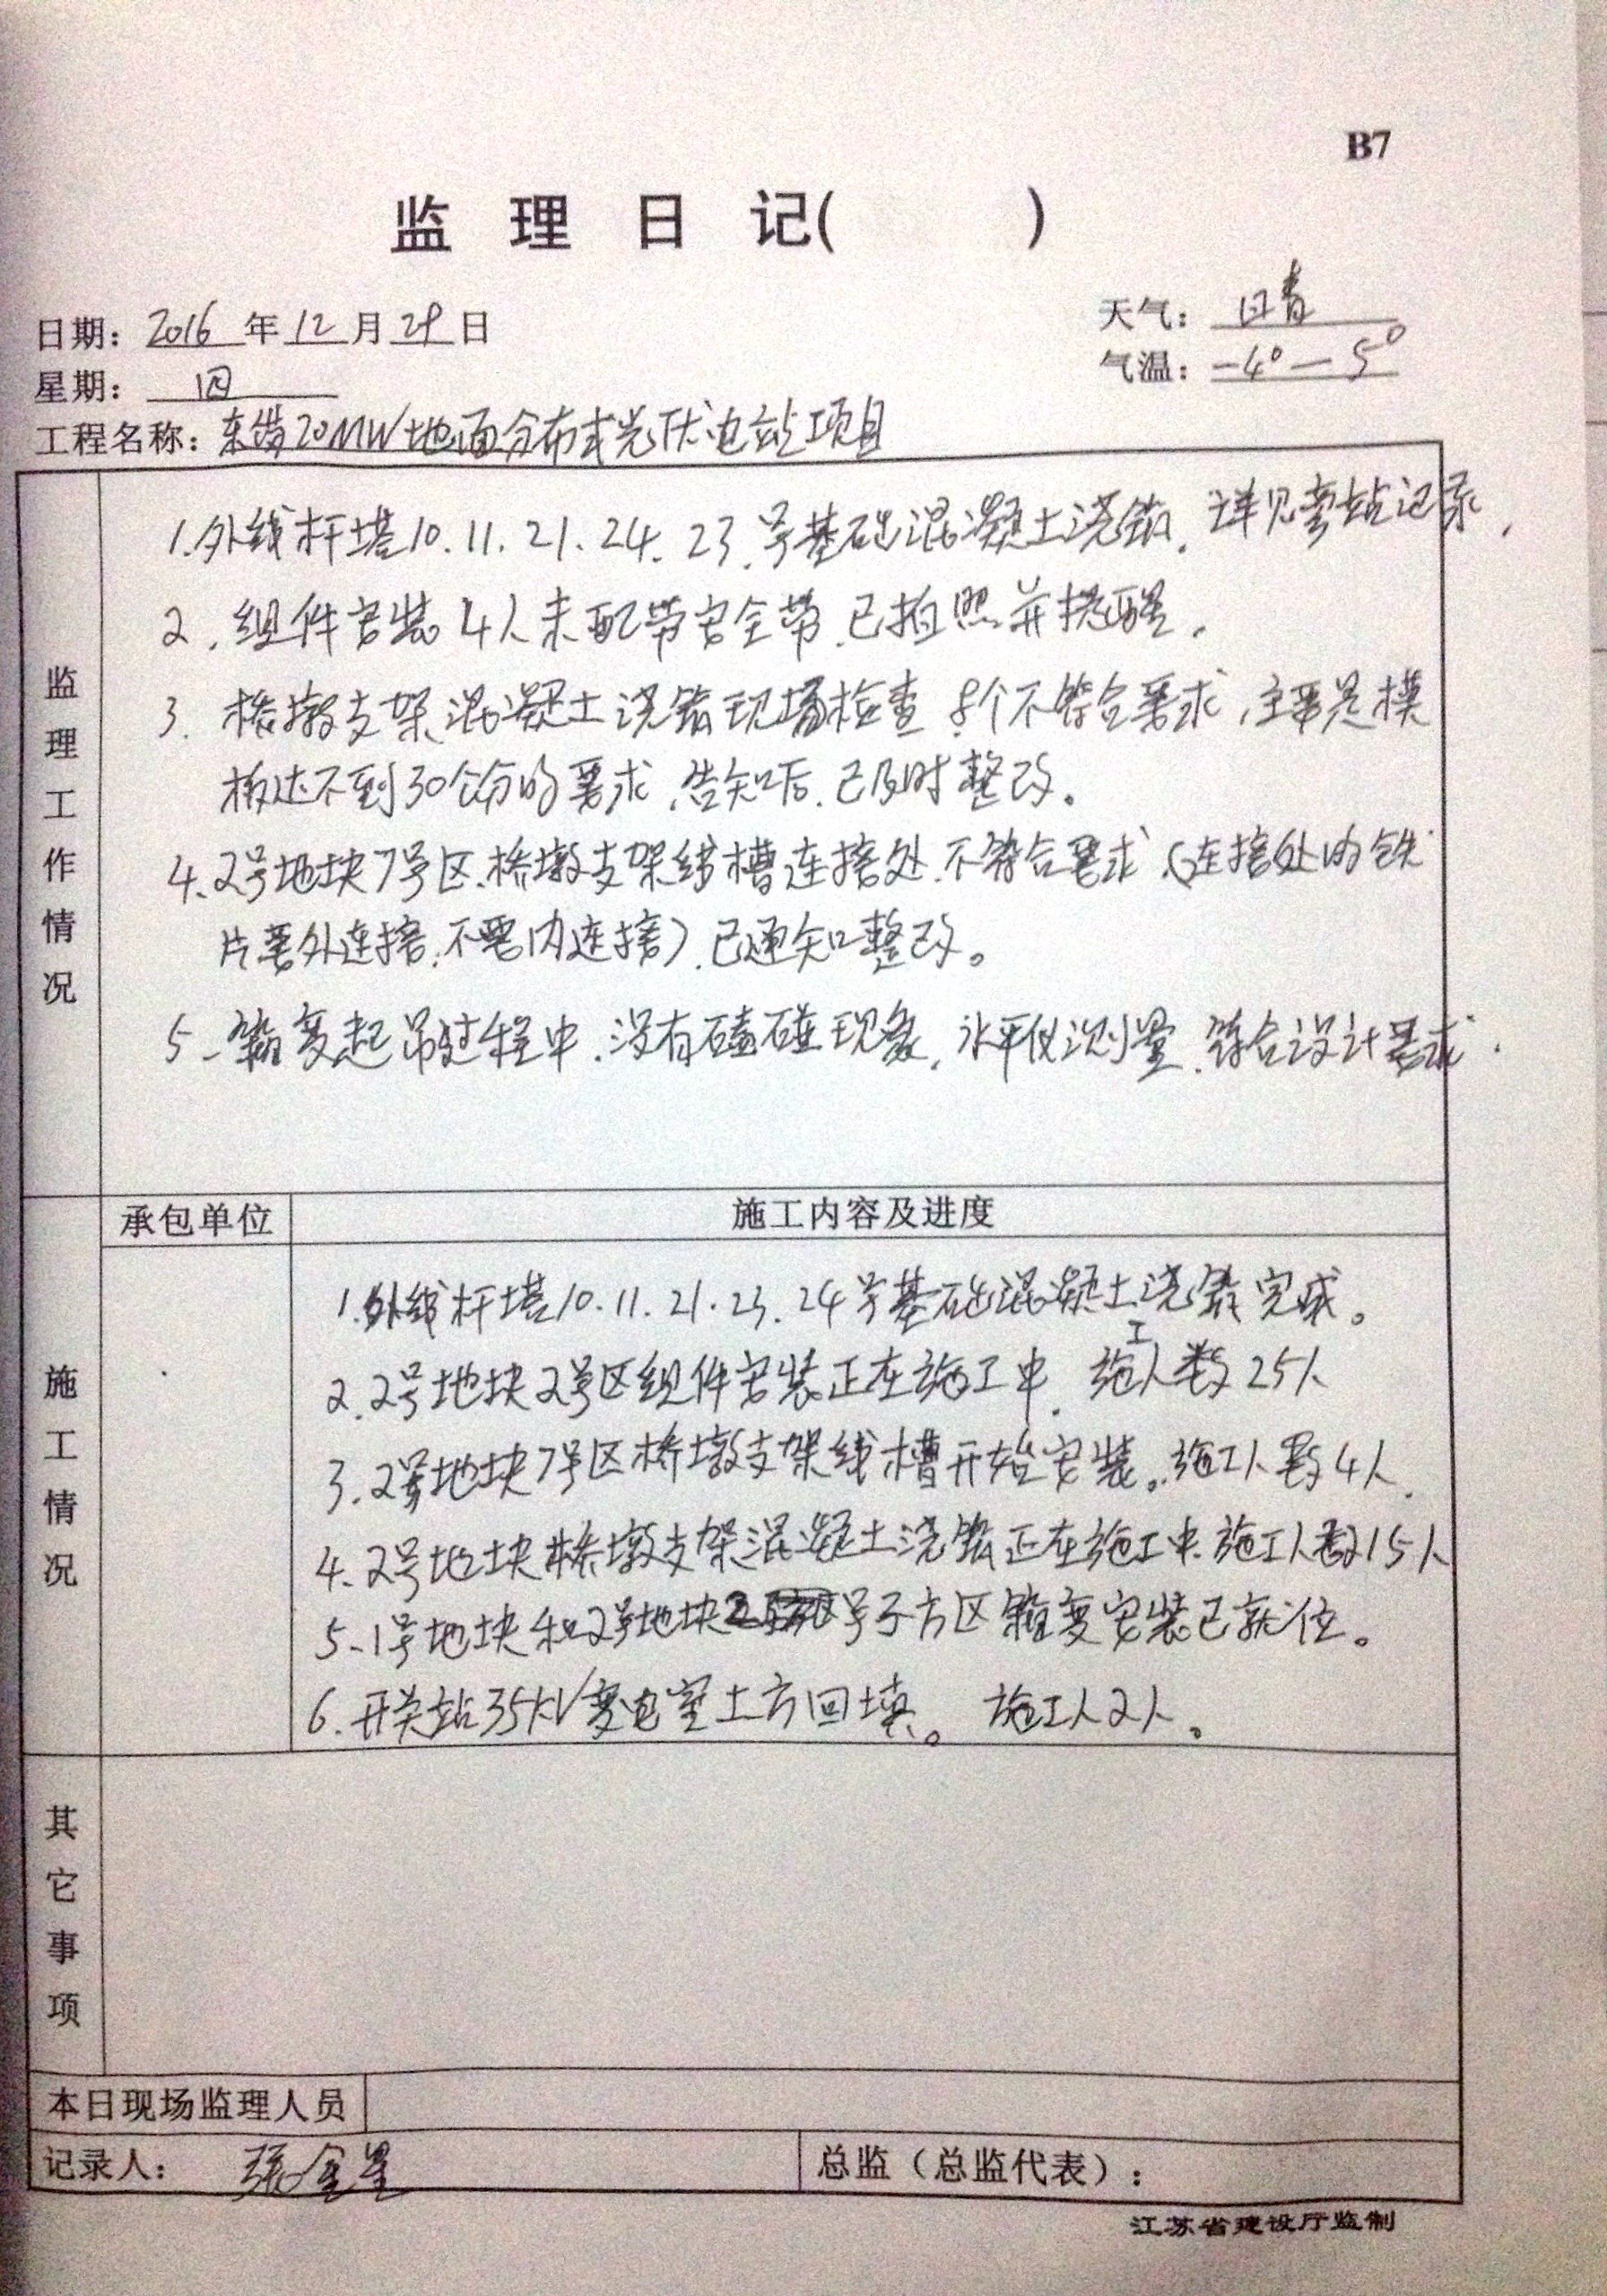 B7
监 理 日 记( )
日期: 2016 年 12 月 29 日
天气: 晴
星期: 四
气温: -4° — 5°
工程名称: 东 20MW地面分布式光伏电站项目
监理工作情况
1.外线杆塔10.11.21.24.23.号基础混凝土浇筑.详见旁站记录.
2.组件安装4人未配带安全带.已拍照并提醒.
3.桥墩支架混凝土浇筑现场检查.8个不符合要求,主要是模
板达不到30公分的要求.告知后.已及时整改。
4.2号地块7号区.桥墩支架线槽连接处.不符合要求.(连接处的铁
片要外连接.不要内连接).已通知整改。
5-箱变起吊过程中.没有磕碰现象.水平仪测量.符合设计要求.
承包单位
施工内容及进度
施工情况
1.外线杆塔10.11.21.23.24号基础混凝土浇筑完成。
2.2号地块2号区组件安装正在施工中.施工人数25人
3.2号地块7号区桥墩支架线槽开始安装。施工人数4人.
4.2号地块桥墩支架混凝土浇筑正在施工中.施工人数15人
5-1号地块和2号地块2 号子方区箱变安装已就位。
6.开关站35kV变电室土方回填。施工人2人。
其它事项
本日现场监理人员
记录人: 张金星
总监(总监代表):
江苏省建设厅监制